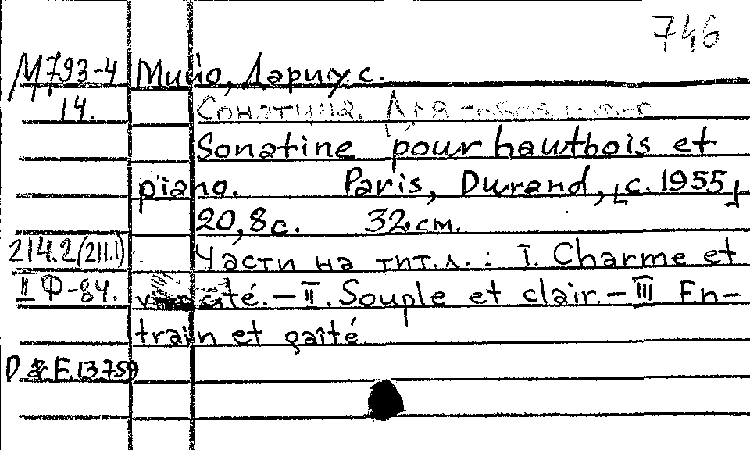 746
М793-4 Мийо, Дариус.
14. Сонатина. Для гобоя и фп.
Sonatine pour hautbois et
piano. Paris, Durand, [c. 1955]
20,8с. 32см.
214.2(211.1) Части на тит.л.: I. Charme et
II Ф-84. vivacité.–II. Souple et clair.–III En-
train et gaîté.
D & F. 13759